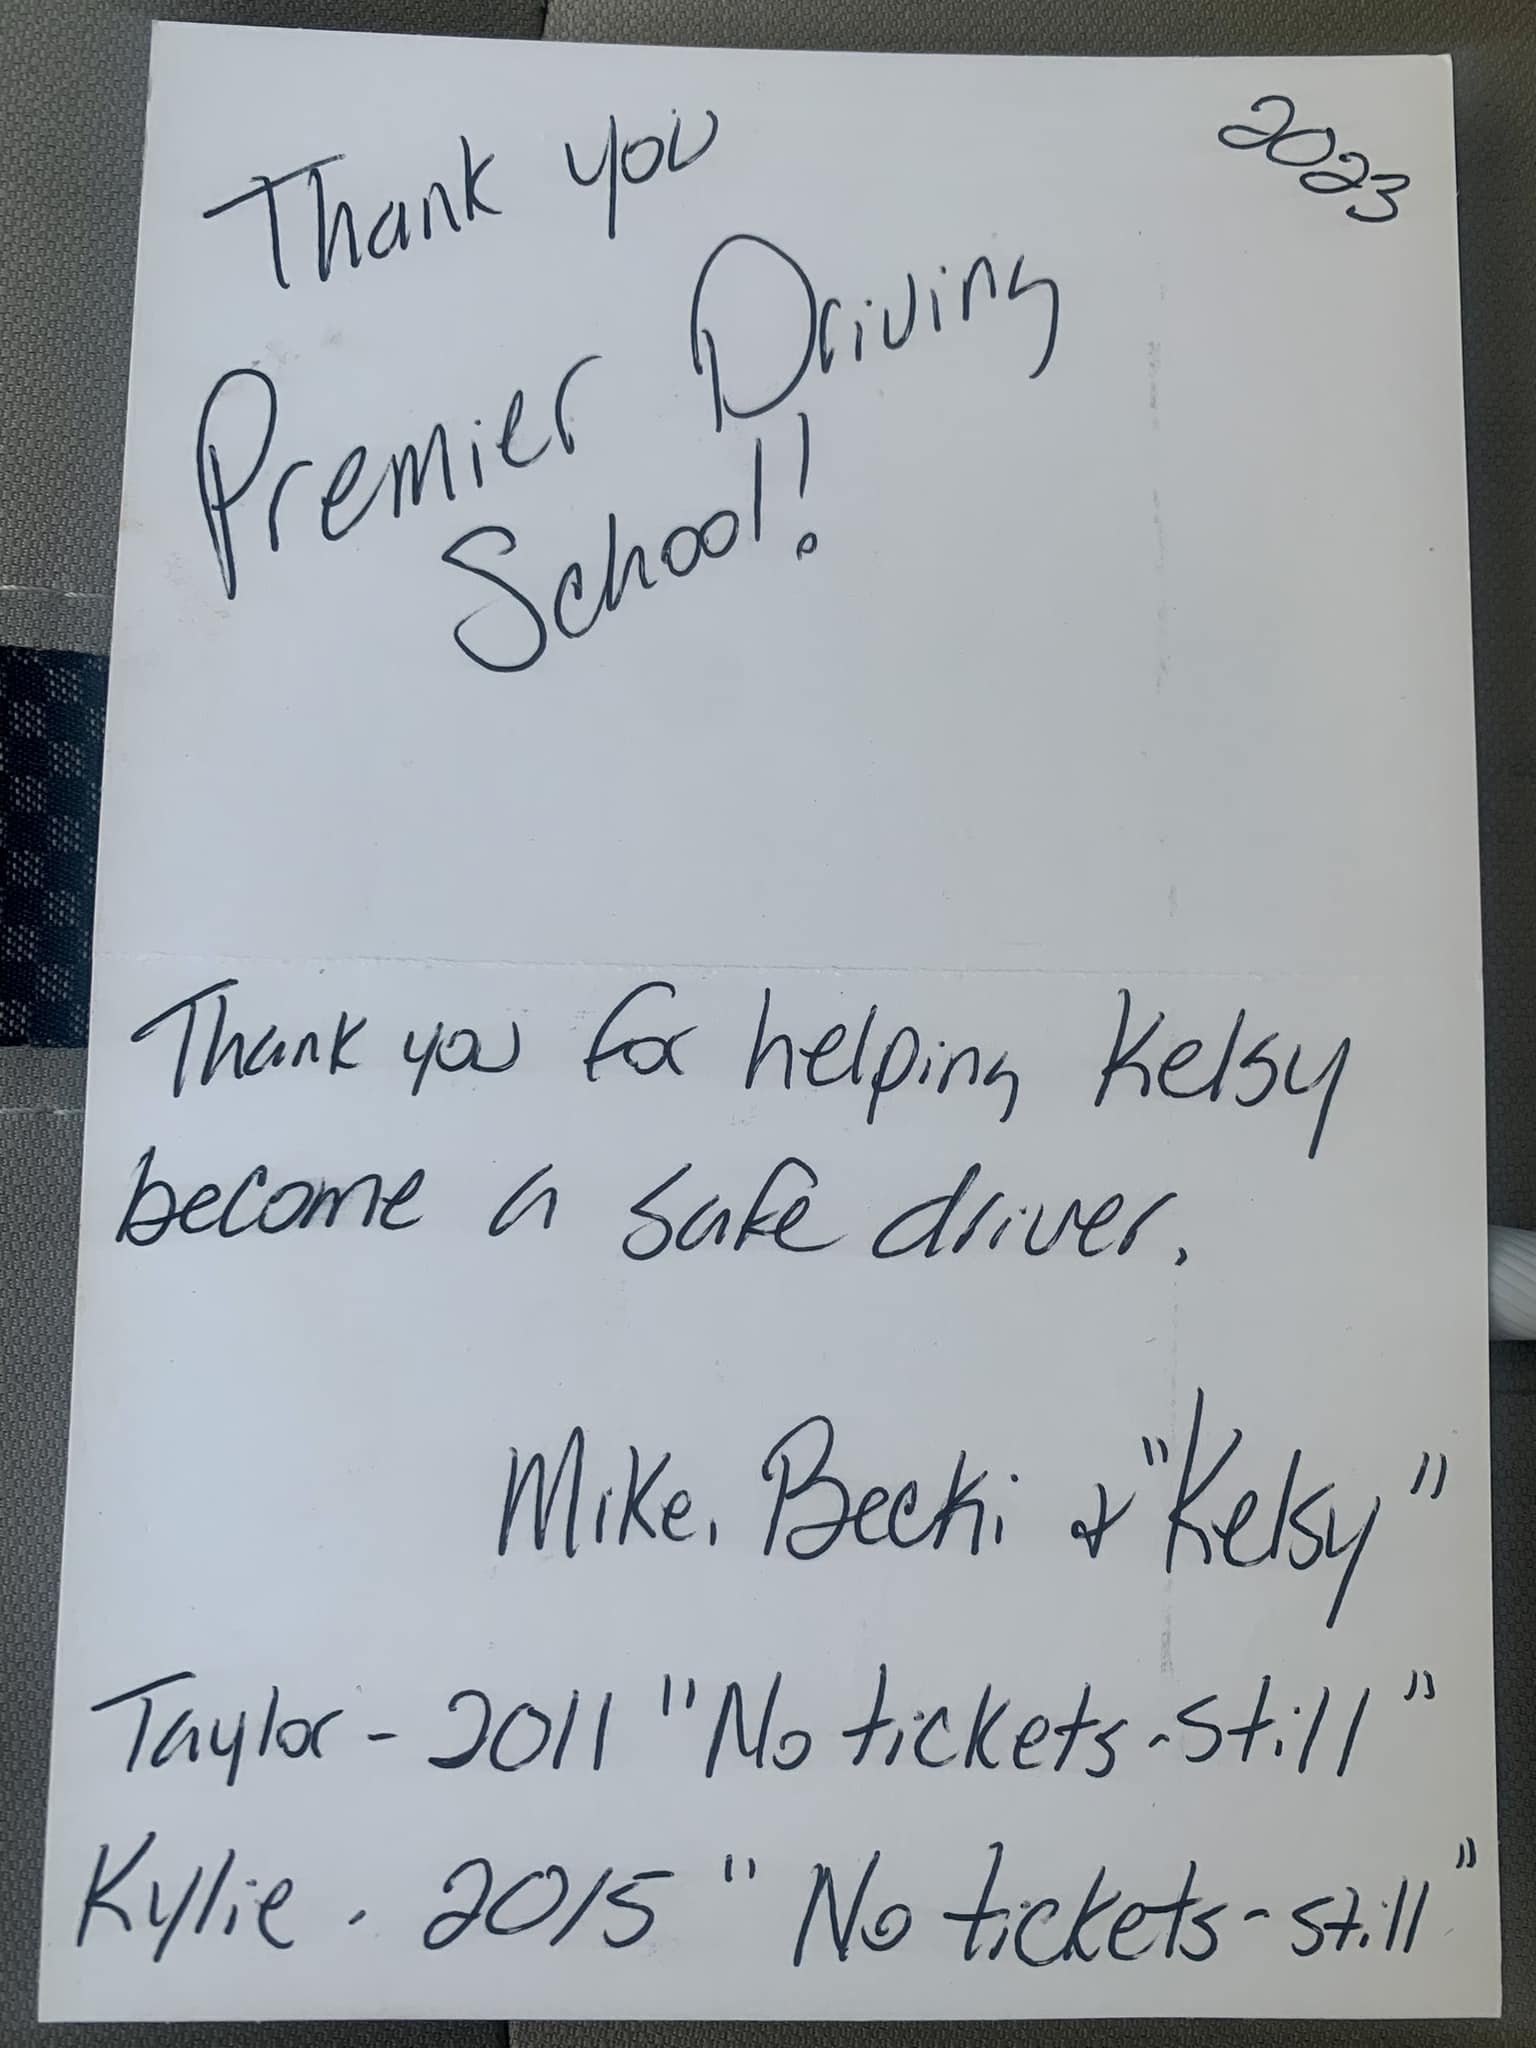 2023
Thank you
Premier Driving
School!!
Thank you for helping Kelsy
become a safe driver.
Mike, Becki & "Kelsy"
Taylor - 2011 "No tickets - still"
Kylie - 2015 "No tickets - still"